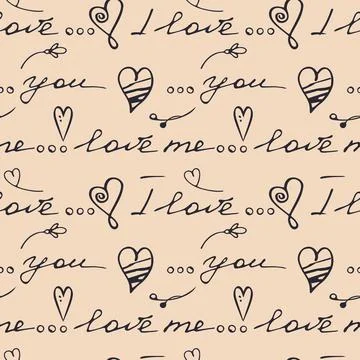 love... I love... I l
... you ... you
me... love me... love m
love... I love... I l
... you ... you
me... love me... love m